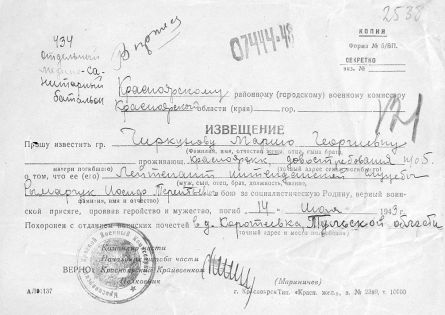 2538
434
Отдельный
медико-са-
нитарный
батальон
07444-43
КОПИЯ
Форма № 6/ВП.
СЕКРЕТНО
экз. №
Красноярскому районному (городскому) военному комиссару
Красноярской области (края) гор.
ИЗВЕЩЕНИЕ
Прошу известить гр. Чиркунову Марию Георгиевну
(Фамилия, имя, отчество жены, отца, сына, брата,
матери погибшего) проживающ. Красноярск, довостребования п/о 5.
о том, что ее (его) Лейтенант интендантской службы
(муж, сын, отец, брат, должность, звание,
Рымарчук Иосиф в бою за социалистическую Родину, верный воин-
фамилия, имя и отчество)
ской присяге, проявив геройство и мужество, погиб 14 июля 1943 г.
Похоронен с отданием воинских почестей в д. Коротеевка Тульской области
(точный адрес и место погребения)
Командир части
Начальник штаба части
ВЕРНО: Красноярский Крайвоенком
Полковник (Мариничев)
г. Красноярск Тип. «Красн. жел.», з. № 2389, т. 10000